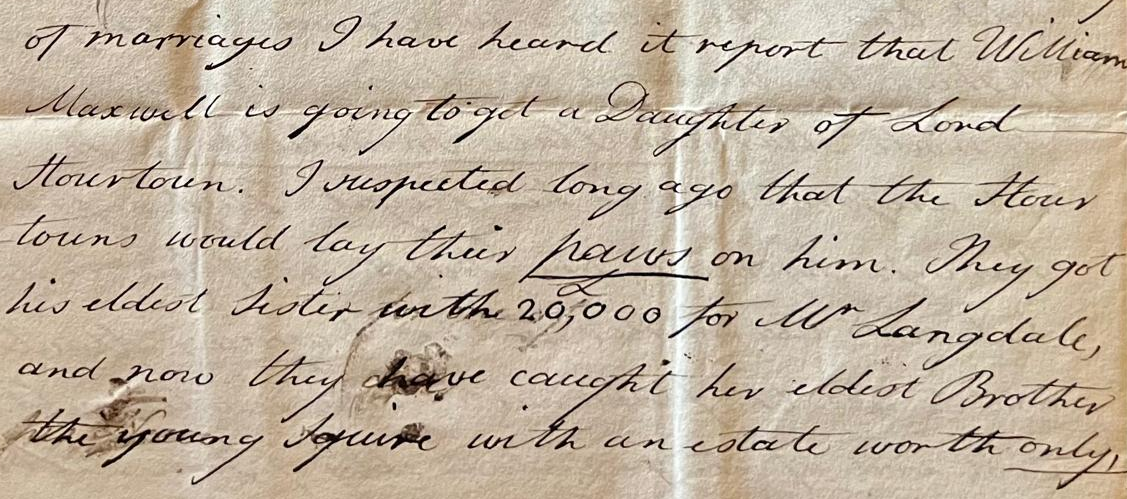 of marriages I have heard it report that William
Maxwell is going to get a Daughter of Lord
Stourtoun. I suspected long ago that the Stour
touns would lay their paws on him. They got
his eldest Sister with the £20,000 for Mr Langdale,
and now they have caught her eldest Brother
the young Squire with an estate worth only,